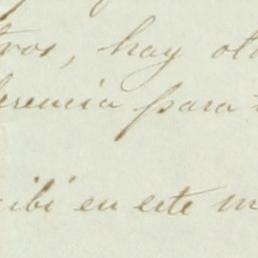 tros, hay ot
ferencia para
cibí en este m